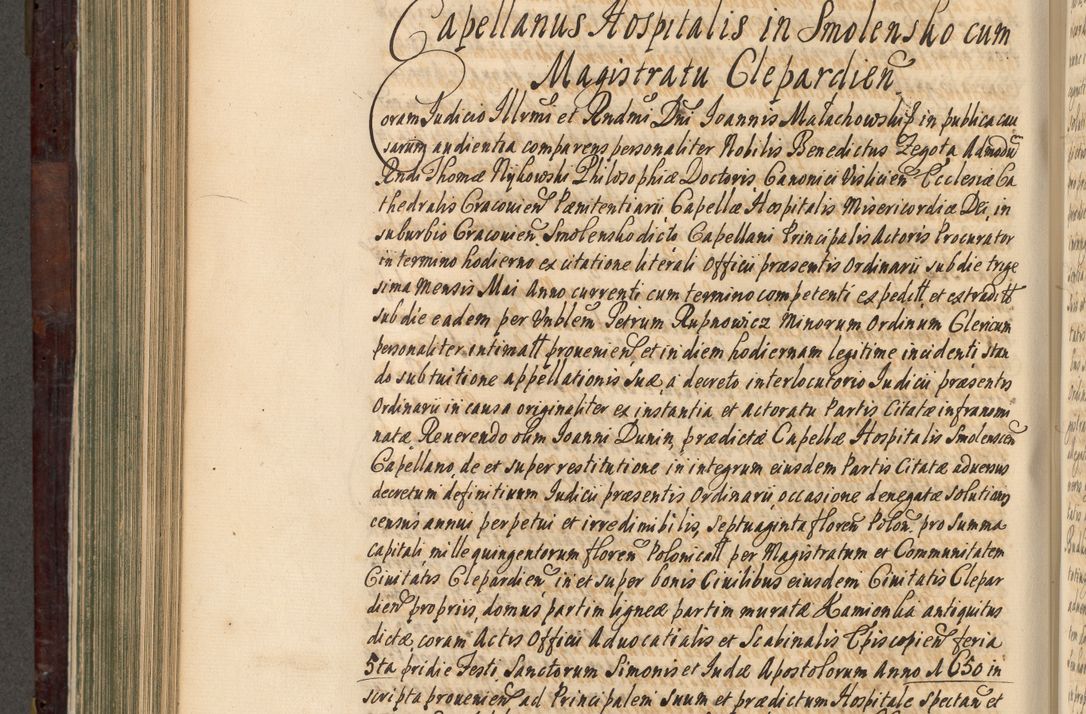 Capellanus Hospitalis in Smolensko cum
Magistratu Clepardien
Coram Judicio Illrmi et Rndmi Dni Joannis Małachowski in publica cau
sarum audientia comparens personaliter Nobilis Benedictus Zegota Admodu
Rndi Thomæ Nykowski Philosophiæ Doctoris, Canonici Vislicien Ecclesiæ Ca
thedralis Cracovien Pænitentiarii Capellæ Hospitalis Misericordiæ Dei, in
suburbio Cracovien Smolensko dicto Capellani Principalis Actoris Procurator
in termino hodierno ex citatione literali Officii præsentis Ordinarii sub die trige
sima Mensis Mai Anno currenti cum termino competenti ex peditt et extraditt
sub die eadem per Vnblem Petrum Rupnowicz Minorum Ordinum Clericum
personaliter intimatt provenien, et in diem hodiernam legitime incidenti stan
do sub tuitione appellationis suæ a decreto interlocutorio Judicii præsentis
Ordinarii in causa originaliter ex instantia et actoratu Partis Citatæ infranomi
natæ, Reverendo olim Joanni Dunin, prædictæ Capellæ Hospitalis Smolenscen
Capellano de et super restitutione in integrum eiusdem Partis Citatæ adversus
decretum definitivum Judicii præsentis Ordinarii, occasione denegatæ solutionis
census annui perpetui et irredimibilis, septuaginta floren Polon, pro summa
capitali mille quingentorum floren Polonicall per Magistratum et Communitatem
Civitatis Clepardien in et super bonis Civilibus eiusdem Civitatis Clepar
dien propriis, domus partim ligneæ partim muratæ Kamionka antiquitus
dictæ, coram Actis Officii Advocatialis et Scabinalis Episcopien feria
5ta pridie Festi Sanctorum Simonis et Judæ Apostolorum Anno 1650 in
scripta provenien ad Principalem suum et prædictum Hospitale spectan et